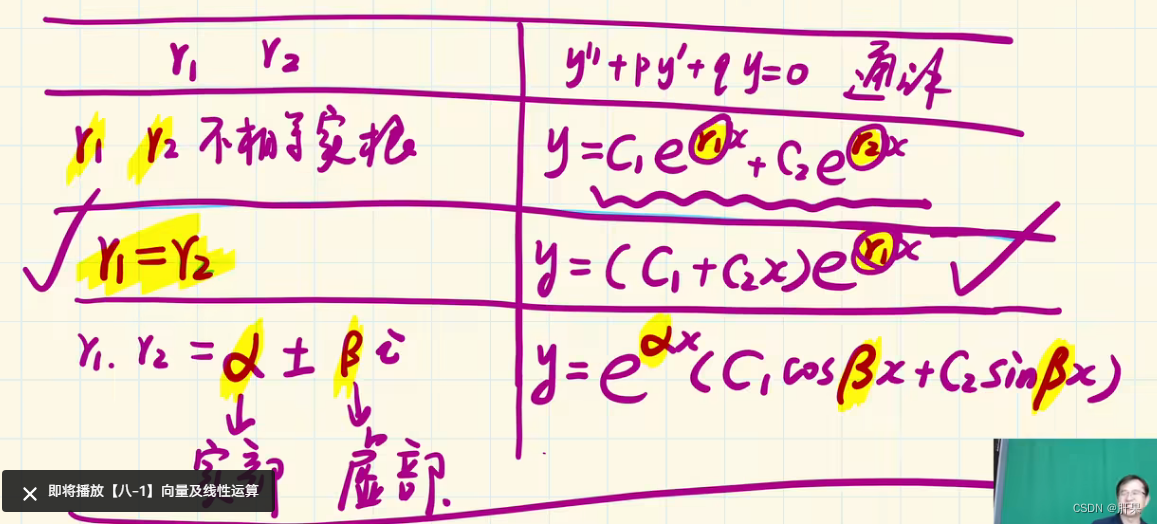 r₁ r₂ y''+py'+qy=0 通详
r₁ r₂ 不相等实根 y=C₁e^{r₁x}+C₂e^{r₂x}
r₁=r₂ y=(C₁+C₂x)e^{r₁x}
r₁. r₂ = α ± βi y=e^{αx}(C₁cosβx+C₂sinβx)
实部 虚部.
即将播放【八-1】向量及线性运算